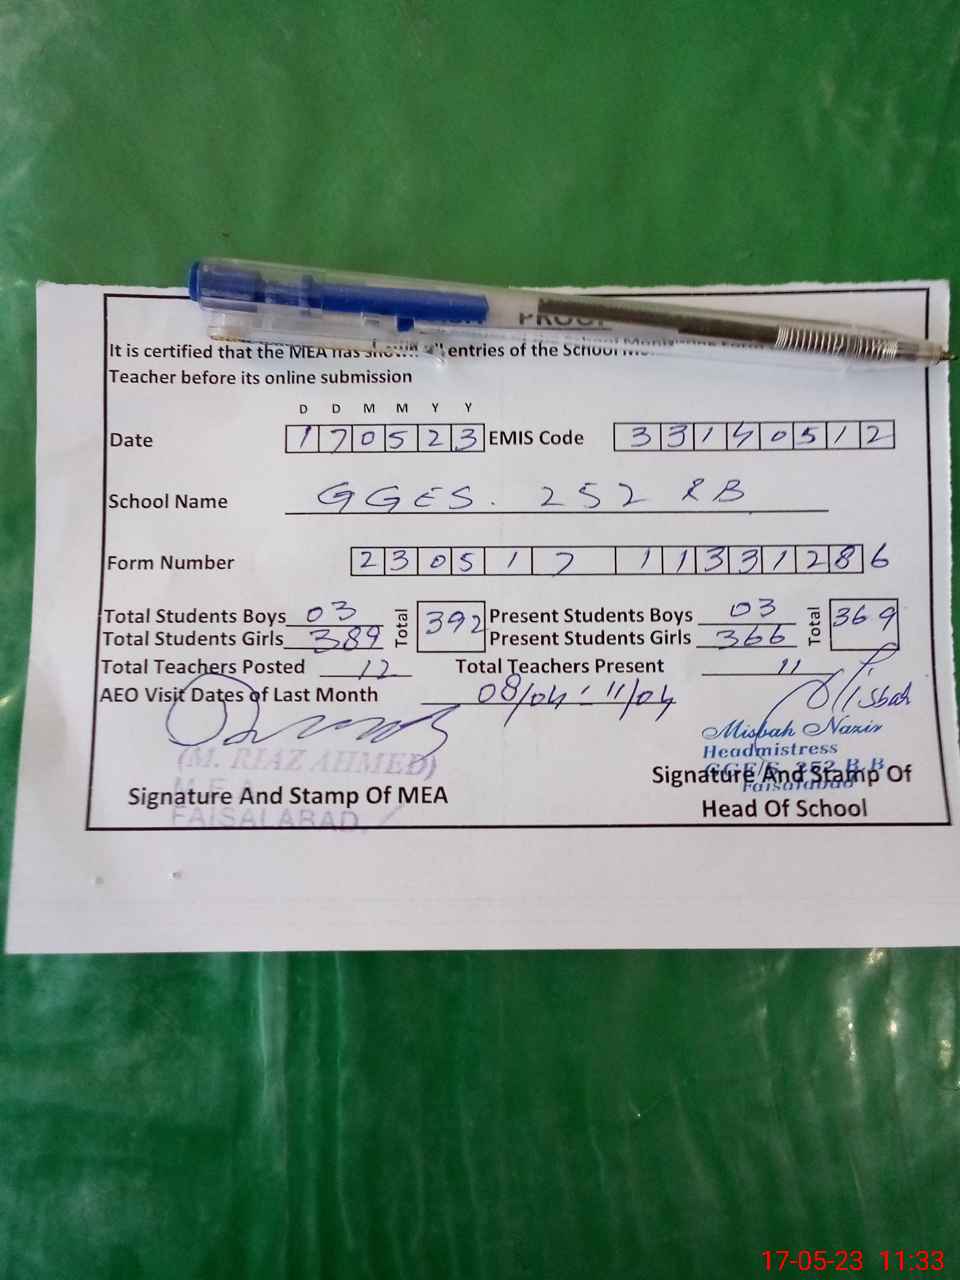 PROOF
It is certified that the MEA has shown all entries of the School
Teacher before its online submission
D D M M Y Y
Date 170523 EMIS Code 33140512
School Name GGES. 252 RB
Form Number 23051711331286
Total Students Boys 03 Total 392 Present Students Boys 03 Total 369
Total Students Girls 389 Present Students Girls 366
Total Teachers Posted 12 Total Teachers Present 11
AEO Visit Dates of Last Month 08/04 - 11/04 Misbah
Misbah Nazir
(M. RIAZ AHMED) Headmistress
M.E.A G.G.E/S. 252 R.B
Signature And Stamp Of MEA Signature And Stamp Of
FAISALABAD. Faisalabad
Head Of School
17-05-23 11:33